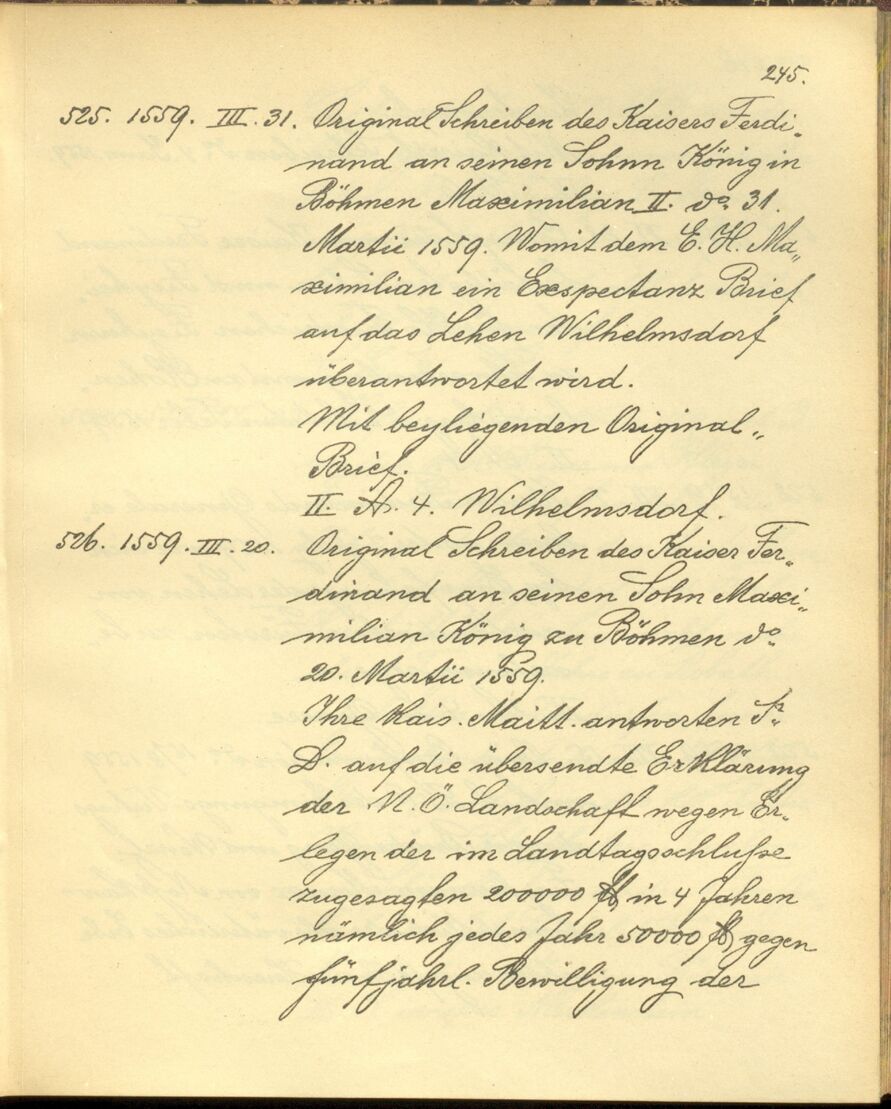 245.
525. 1559. III. 31. Original Schreiben des Kaisers Ferdi„
nand an seinen Sohnn König in
Böhmen Maximilian II. do. 31.
Martii 1559. Womit dem E. H. Ma„
ximilian ein Exspectanz Brief
auf das Lehen Wilhelmsdorf
überantwortet wird.
Mit beyliegenden Original„
Brief.
II. A. 4. Wilhelmsdorf.
526. 1559. III. 20. Original Schreiben des Kaiser Fer„
dinand an seinen Sohn Maxi„
milian König zu Böhmen do.
20. Martii 1559.
Ihre Kais. Maitt. antworten Sr.
D. auf die übersendte Erklärung
der N. Ö. Landschaft wegen Er„
legen der im Landtagsschluße
zugesagten 200000 fl in 4 Jahren
nämlich jedes Jahr 50000 fl gegen
fünfjährl. Bewilligung der